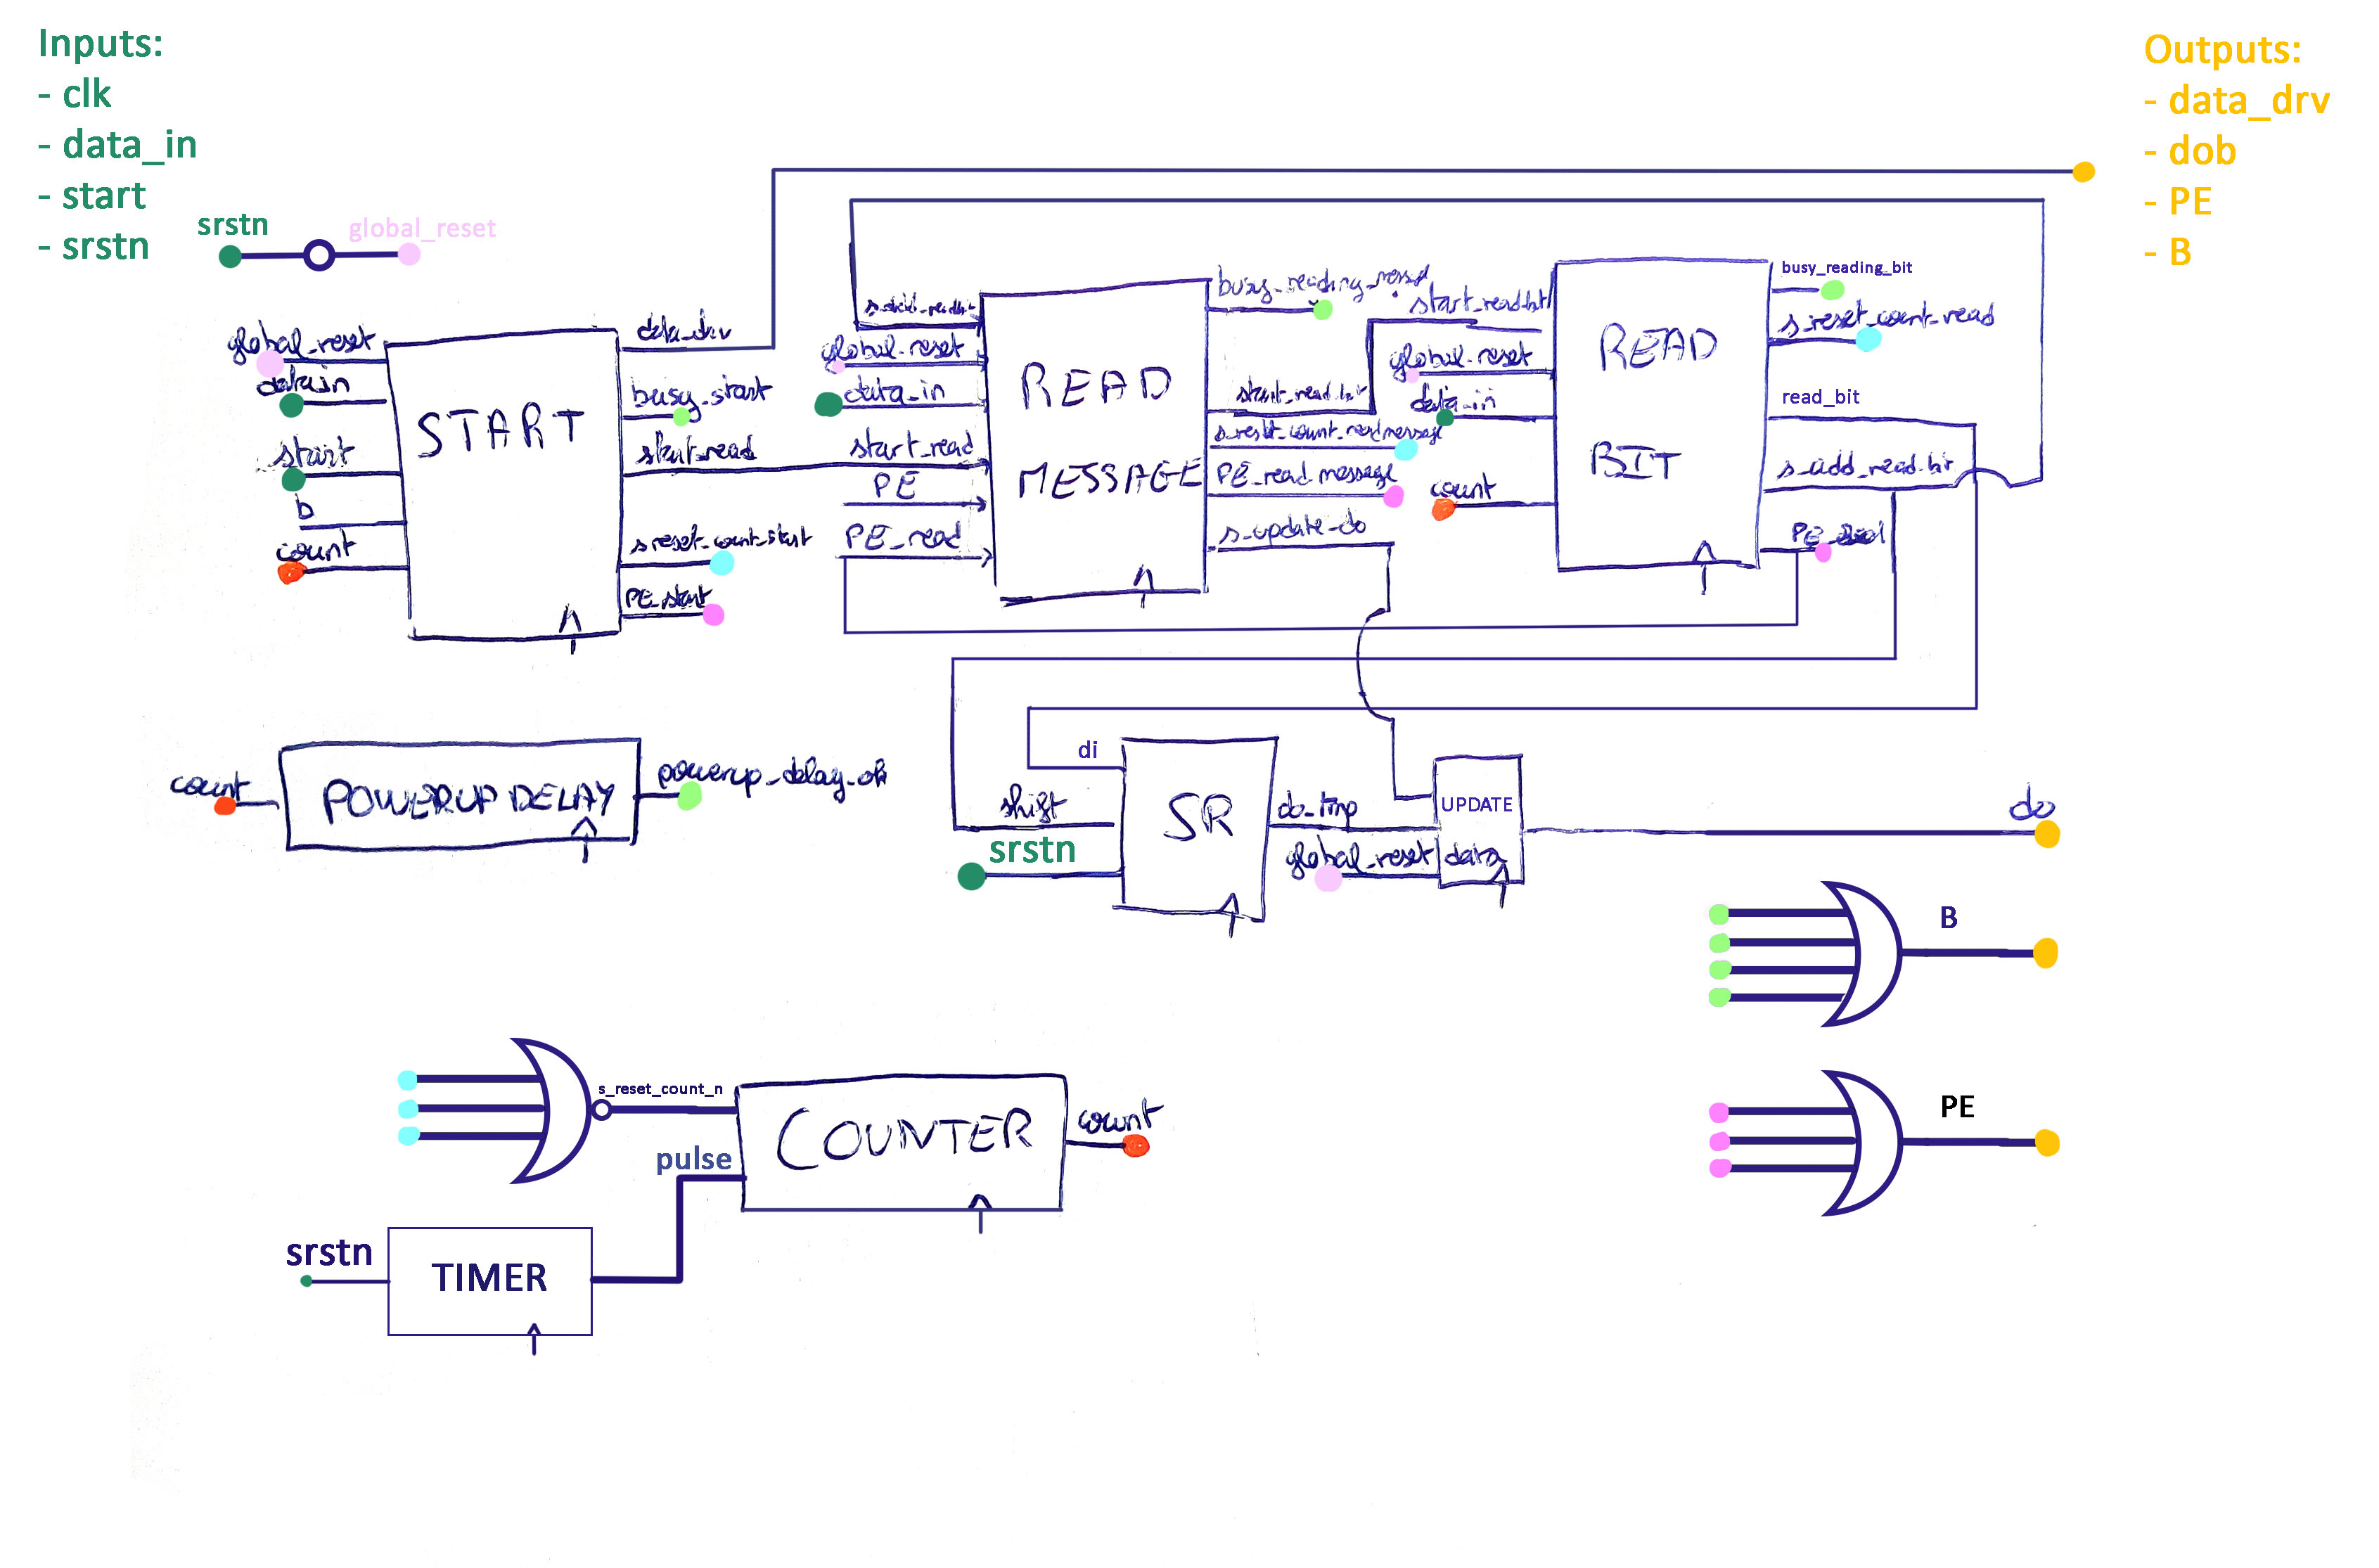 Inputs:
- clk
- data_in
- start
- srstn
Outputs:
- data_drv
- dob
- PE
- B
srstn
global_reset
global_reset
data_in
start
b
count
START
data_drv
busy_start
start_read
s_reset_count_start
PE_start
global_reset
data_in
start_read
PE
PE_read
READ
MESSAGE
start_read_bit
s_reset_count_readmessage
PE_read_message
s_update_do
start_read_bit
global_reset
data_in
count
READ
BIT
busy_reading_bit
s_reset_count_read
read_bit
s_add_read_bit
count
POWERUP DELAY
powerup_delay_ok
di
shift
srstn
SR
do_tmp
global_reset
UPDATE
data
do
B
PE
s_reset_count_n
pulse
COUNTER
count
srstn
TIMER